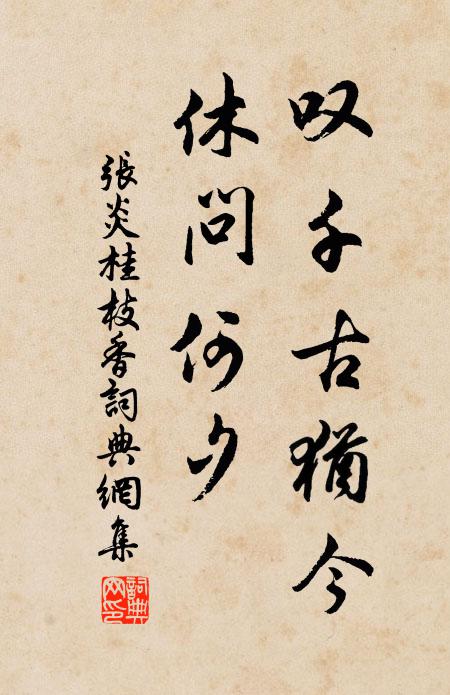 叹千古猶今
休問何夕
張炎桂枝香詞典網集
詞典網印